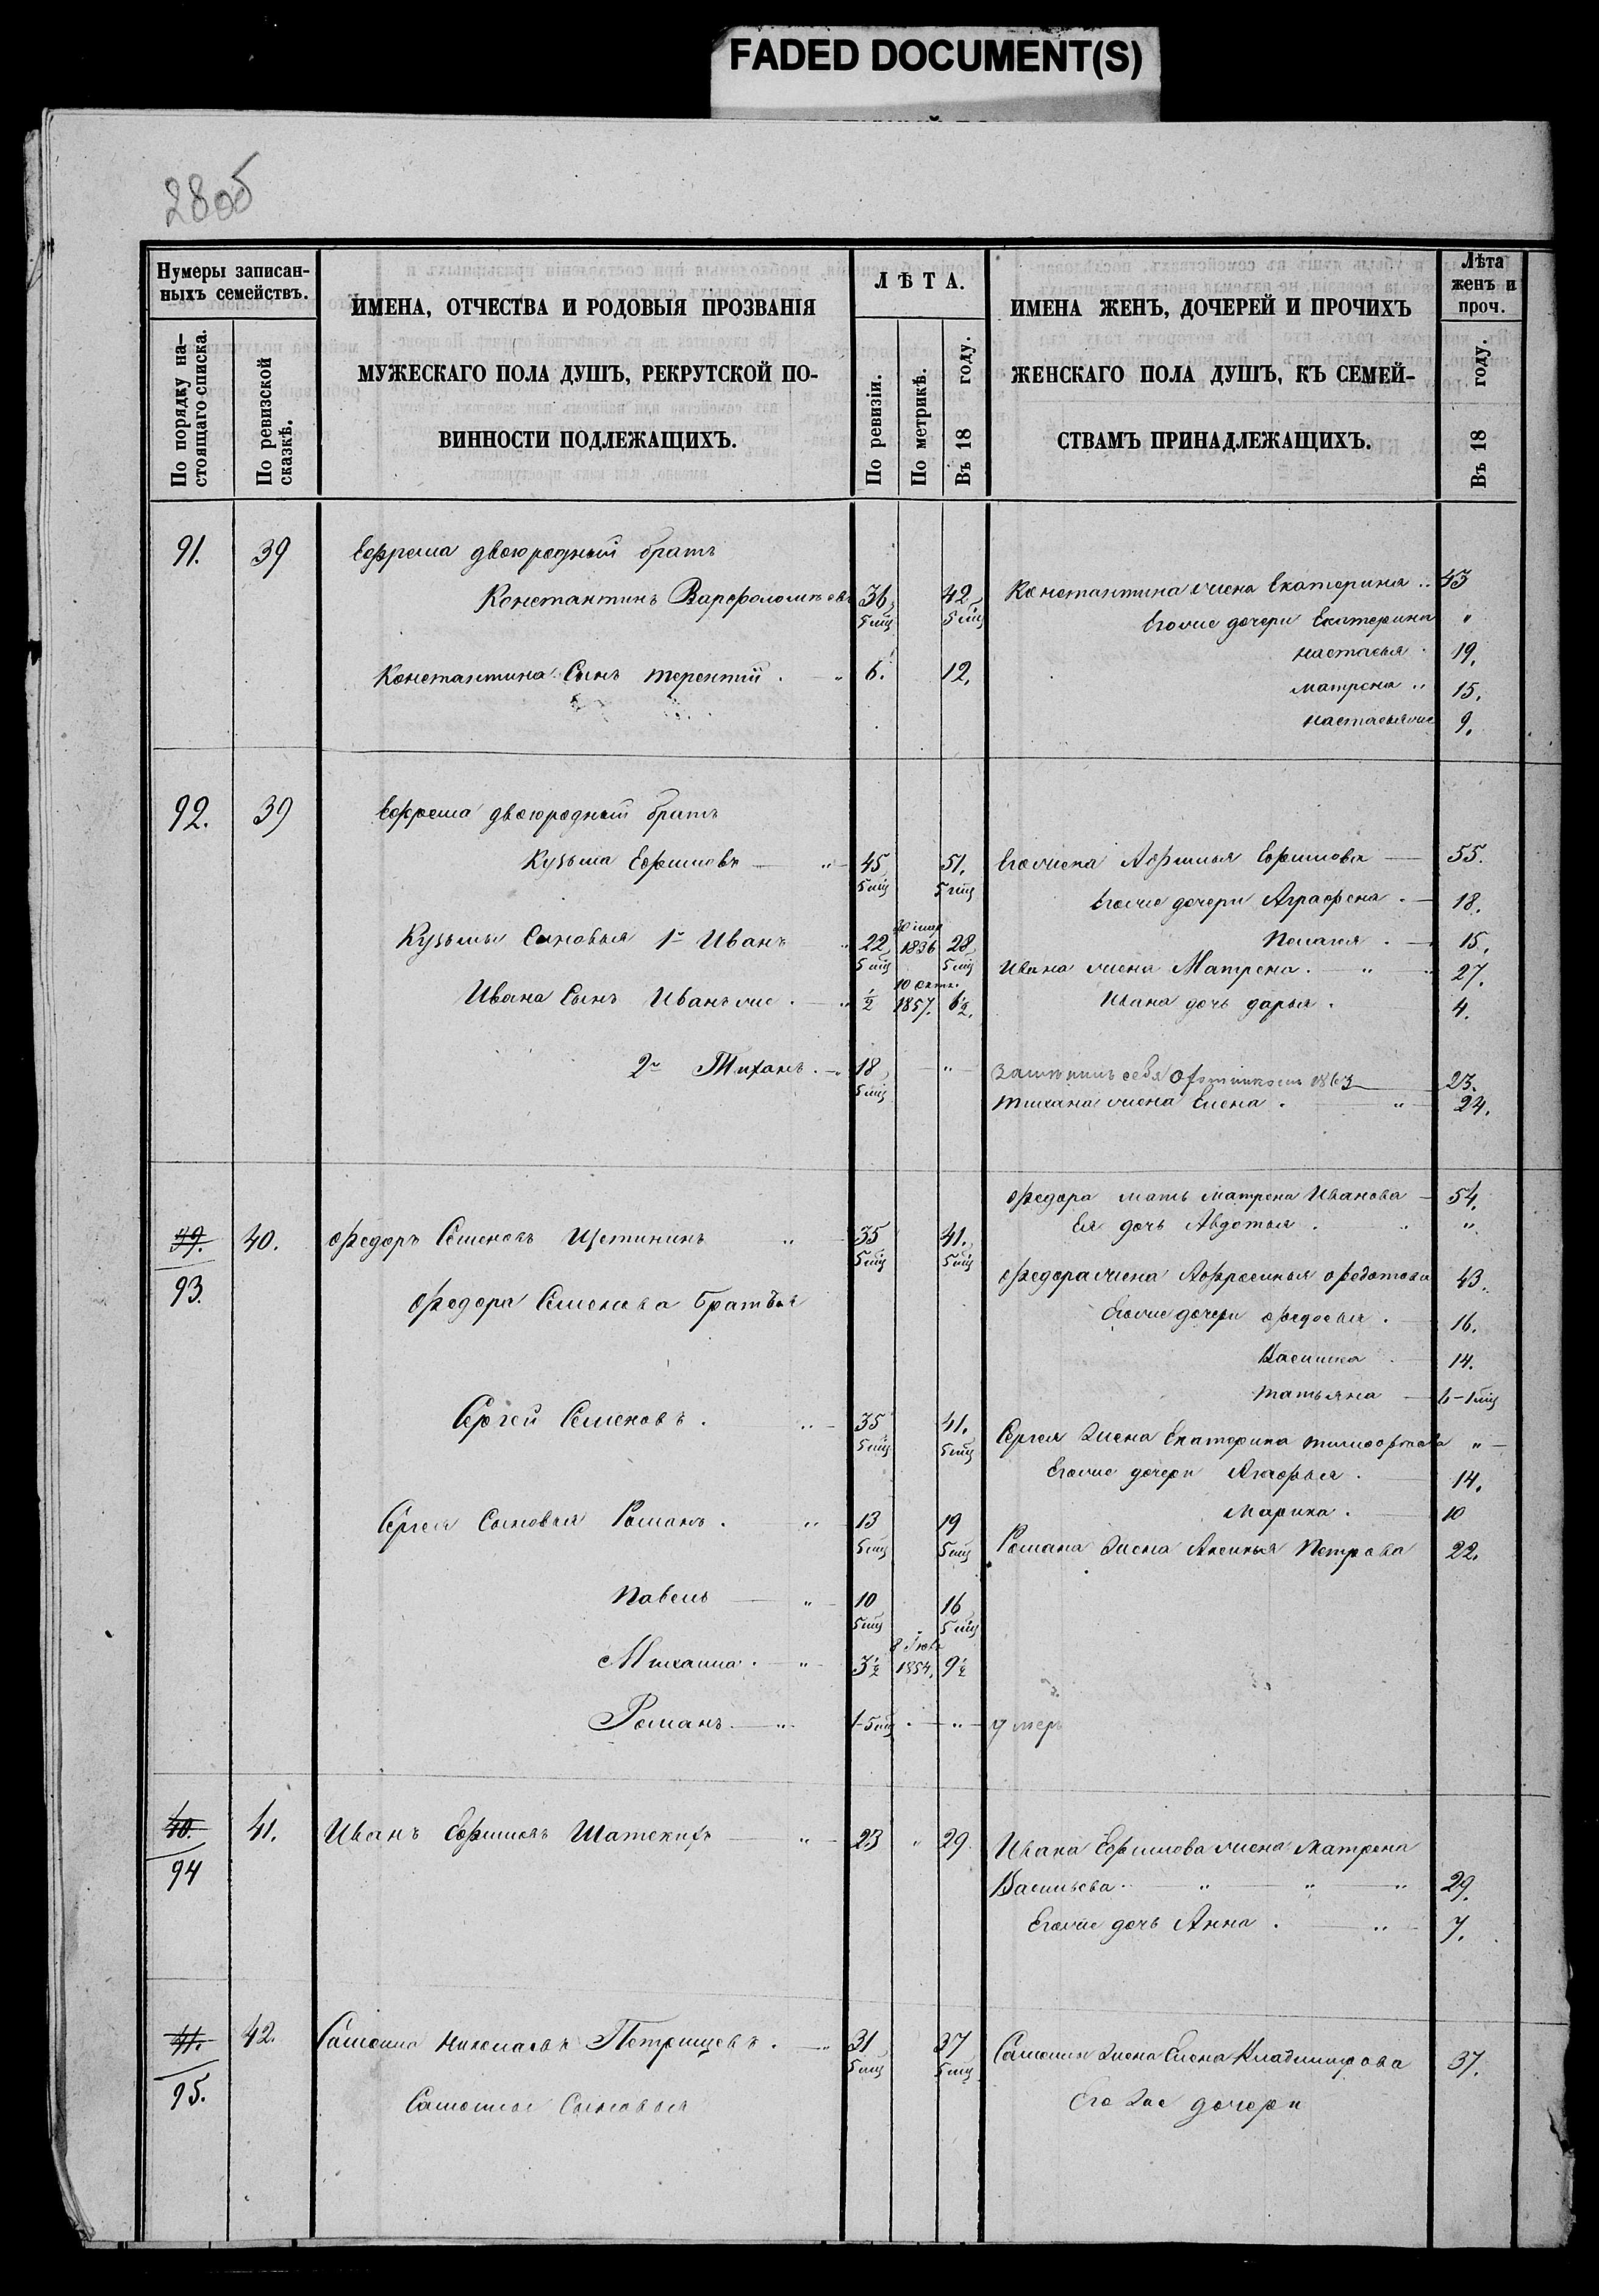 FADED DOCUMENT(S)
28об
Нумеры записан-
ныхъ семействъ.
По порядку на-
стоящаго списка.
По ревизской
сказкѣ.
ИМЕНА, ОТЧЕСТВА И РОДОВЫЯ ПРОЗВАНІЯ
МУЖЕСКАГО ПОЛА ДУШЪ, РЕКРУТСКОЙ ПО-
ВИННОСТИ ПОДЛЕЖАЩИХЪ.
ЛѢТА.
По ревизіи.
По метрикѣ.
Въ 18 году.
ИМЕНА ЖЕНЪ, ДОЧЕРЕЙ И ПРОЧИХЪ
ЖЕНСКАГО ПОЛА ДУШЪ, КЪ СЕМЕЙ-
СТВАМЪ ПРИНАДЛЕЖАЩИХЪ.
Лѣта
женъ и
проч.
Въ 18 году.
91. 39 Ефрема двоюродный братъ
Константинъ Варфоломѣевъ 36, 5 мѣц 42, 5 мѣц
Константина Сынъ терентій . " 6. 12.
Константина жена Екатерина .. 43
Егоже дочери Екатерина "
настасья . 19.
матрена .. 15.
настасьяже 9.
92. 39 Ефрема двоюродный братъ
Кузьма Ефимовъ — " 45 5 мѣц 51. 5 мѣц
Кузьмы Сыновья 1й Иванъ " 22, 5 мѣц 1836 28, 5 мѣц
Ивана Сынъ Иванъже . " 1/2 10 окт. 1857. 6 1/2.
2й Тиханъ . " 18, 5 мѣц "
Егожена Афимья Ефимова — 55.
Егоже дочери Аграфена . — 18.
Пелагея . — 15.
Ивана жена Матрена . — " 27.
Ивана дочь дарья . 4.
1863 — 23.
тихана жена Елена . " 24.
39. 93. 40. Федоръ Семеновъ Щетининъ " 35 5 мѣц 41. 5 мѣц
Федора Семенова братья
Сергей Семеновъ . " 35 5 мѣц 41. 5 мѣц
Сергея Сыновья Романъ . " 13 5 мѣц 19 5 мѣц
Павелъ — " 10 5 мѣц 16 5 мѣц
Михаила . " 3 1/2 1854. 9 1/2
Романъ — " 1-5 мѣц . — " — умеръ
Федора мать матрена Иванова — 54.
Ея дочь Авдотья . " "
Федора жена Афросинья Федотова 43.
Егоже дочери Федосья . 16.
Василиса . 14.
татьяна — 6-1 мѣц
Сергея жена Екатерина тимофеева " —
Егоже дочери Агафья . 14.
Марина . 10
Романа жена Аксинья Петрова 22.
40. 94 41. Иванъ Ефимовъ Шатскихъ — " 23 " 29.
Ивана Ефимова жена матрена
Васильева . " " " 29.
Егоже дочь Анна . " 7.
41. 95. 42. Самойла Николаевъ Петрищевъ . " 31 5 мѣц 37 5 мѣц
Самойлы Сыновья
Самойлы жена Елена Владимирова 37.
Его же дочери